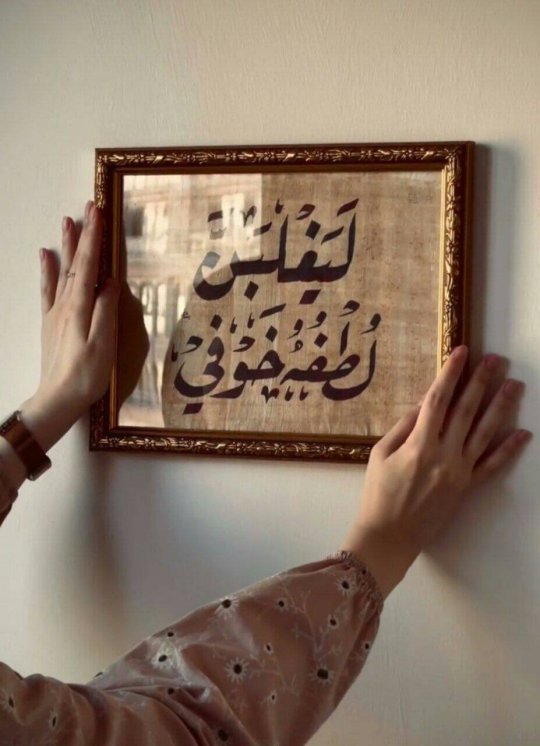 لَيَغْلَبَنَّ
لُطْفُهُ خَوْفِي